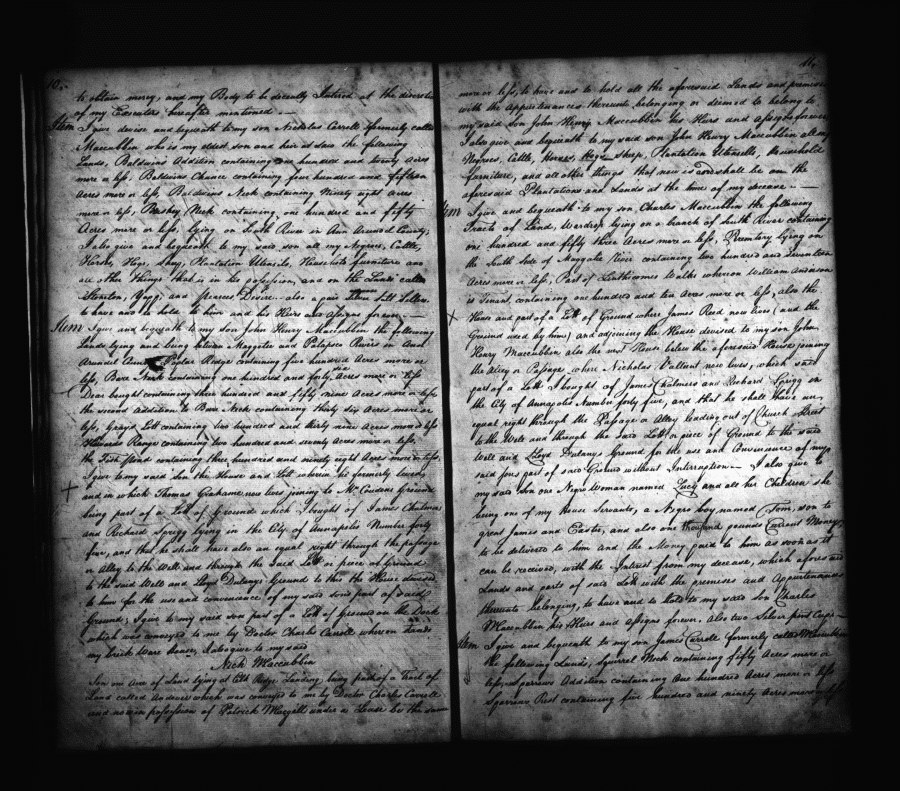 10..
to obtain mercy, and my Body to be decently Interred at the discretion
of my Executors hereafter mentioned
Item I give devise and bequeath to my son Nicholas Carroll formerly called
Maccubbin who is my eldest son and heir at Law the following
Lands, Baldwins Addition containing one hundred and twenty Acres
more or less, Baldwins Chance containing four hundred and fifteen
Acres more or less, Baldwins Neck containing Ninety eight Acres
more or less, Bushey Neck containing one hundred and fifty
Acres more or less, lying on South River in Ann Arundel County,
I also give and bequeath to my said son all my Negroes, Cattle,
Horses, Hogs, Sheep, Plantation Utensils, Household furniture and
all other Things that is in his possession, and on the Lands called
and Spences Desire also a pair
to have and to hold to him and his Heirs and assigns forever
Item I give and bequeath to my son John Henry Maccubbin the following
Lands lying and being between Maggotee and Patapsco Rivers in Ann
Arundel Poplar Ridge containing five hundred Acres more or
less, Bare Neck containing one hundred and forty six Acres more or less
Dear bought containing three hundred and fifty nine Acres more or less,
the second Addition to Bare Neck containing thirty six Acres more or
less, Grays Lott containing two hundred and thirty nine Acres more or less
Howards Range containing two hundred and seventy Acres more or less,
the Fish Pond containing three hundred and ninety eight Acres more or less,
I give to my said son the House and Lott wherein he formerly lived
and in which Thomas Grahame now lives joining to Mr. Coudens Ground
being part of a Lott of Ground which I bought of James Chalmers
and Richard Sprigg lying in the City of Annapolis Number forty
five, and that he shall have also an equal right through the passage
or Alley to the Well and through the said Lott or piece of Ground
to the said Well and Lloyd Dulanys Ground to this the House devised
to him for the use and convenience of my said sons part of said
Ground, I give to my said son part of a Lott of Ground on the Dock
which was conveyed to me by Doctor Charles Carroll whereon stands
my brick Ware house, I also give to my said
Nich. Maccubbin
Son an Acre of Land lying at Elk Ridge Landing being part of a Tract of
Land called Andover which was conveyed to me by Doctor Charles Carroll
and now in possession of Patrick Macgill under a Lease be the same
11.
more or less, to have and to hold all the aforesaid Lands and premises
with the Appurtenances thereunto belonging or deemed to belong to
my said son John Henry Maccubbin his Heirs and assigns forever
I also give and bequeath to my said son John Henry Maccubbin all my
Negroes, Cattle, Horses, Hogs, Sheep, Plantation Utensils, Household
furniture, and all other things that now is and shall be on the
aforesaid Plantations and Lands at the time of my decease
Item I give and bequeath to my son Charles Maccubbin the following
Tracts of Land, Wardrop lying on a branch of South River containing
one hundred and fifty three Acres more or less, Bremtery lying on
the South Side of Maggotee River containing two hundred and seventeen
Acres more or less, Part of whereon William
is Tenant containing one hundred and ten Acres more or less, also the
House and part of a Lott of Ground where James Reed now lives (and the
Ground used by him) and adjoining the House devised to my son John
Henry Maccubbin also the next House below the aforesaid House joining
the Alley or Passage, where Nicholas Valliant now lives, which said
part of a Lott I bought of James Chalmers and Richard Sprigg in
the City of Annapolis Number forty five, and that he shall have an
equal right through the Passage or Alley leading out of Church Street
to the Well and through the said Lott or piece of Ground to the said
Well and Lloyd Dulanys Ground for the use and Convenience of my
said sons part of said Ground without Interruption I also give to
my said son one Negro Woman named Lucy and all her Children she
being one of my House Servants, a Negro boy named Tom, son to
great James and Easter, and also one thousand pounds Current Money
to be delivered to him and the Money paid to him as soon as it
can be received, with the Interest from my decease, which aforesaid
Lands and parts of said Lott with the premises and Appurtenances
thereunto belonging, to have and to hold to my said son Charles
Maccubbin his Heirs and assigns forever, also two Silver pint Cups
Item I give and bequeath to my son James Carroll formerly called Maccubbin
the following Lands, Squirrel Neck containing fifty Acres more or
less, Sparrows Addition containing One hundred Acres more or less
Sparrows Rest containing five hundred and ninety Acres more or less